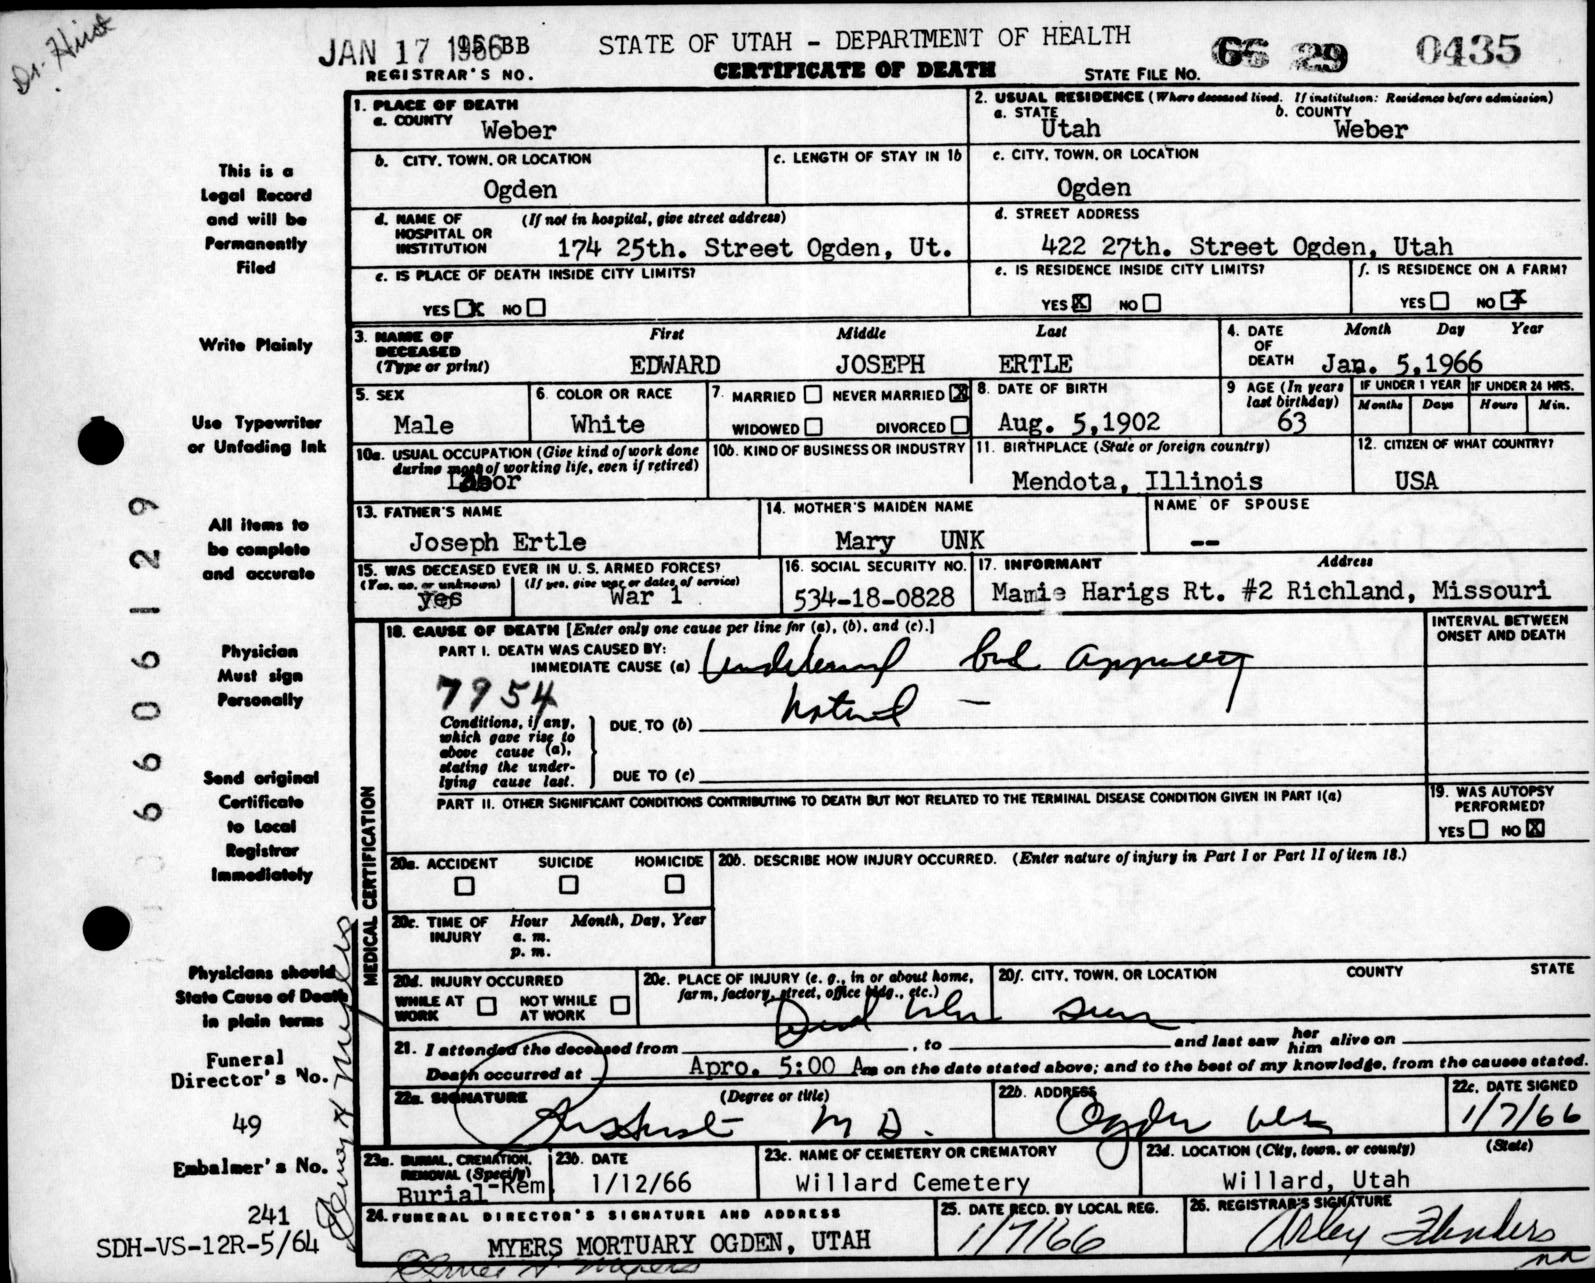 Dr. Hirst
JAN 17 1966 BB
STATE OF UTAH - DEPARTMENT OF HEALTH
REGISTRAR'S NO.
CERTIFICATE OF DEATH
STATE FILE NO. 66 29 0435
1. PLACE OF DEATH
a. COUNTY Weber
2. USUAL RESIDENCE (Where deceased lived. If institution: Residence before admission)
a. STATE Utah b. COUNTY Weber
b. CITY, TOWN, OR LOCATION Ogden
c. LENGTH OF STAY IN 1b
c. CITY, TOWN, OR LOCATION Ogden
d. NAME OF HOSPITAL OR INSTITUTION (If not in hospital, give street address) 174 25th. Street Ogden, Ut.
d. STREET ADDRESS 422 27th. Street Ogden, Utah
e. IS PLACE OF DEATH INSIDE CITY LIMITS?
YES X NO
e. IS RESIDENCE INSIDE CITY LIMITS?
YES X NO
f. IS RESIDENCE ON A FARM?
YES NO X
3. NAME OF DECEASED (Type or print) First Middle Last
EDWARD JOSEPH ERTLE
4. DATE OF DEATH Month Day Year
Jan. 5,1966
5. SEX Male
6. COLOR OR RACE White
7. MARRIED NEVER MARRIED X
WIDOWED DIVORCED
8. DATE OF BIRTH Aug. 5,1902
9 AGE (In years last birthday) 63
IF UNDER 1 YEAR Months Days
IF UNDER 24 HRS. Hours Min.
10a. USUAL OCCUPATION (Give kind of work done during most of working life, even if retired) Labor
10b. KIND OF BUSINESS OR INDUSTRY
11. BIRTHPLACE (State or foreign country) Mendota, Illinois
12. CITIZEN OF WHAT COUNTRY? USA
13. FATHER'S NAME Joseph Ertle
14. MOTHER'S MAIDEN NAME Mary UNK
NAME OF SPOUSE --
15. WAS DECEASED EVER IN U. S. ARMED FORCES?
(Yes, no, or unknown) yes (If yes, give war or dates of service) War 1
16. SOCIAL SECURITY NO. 534-18-0828
17. INFORMANT Address
Mamie Harigs Rt. #2 Richland, Missouri
18. CAUSE OF DEATH [Enter only one cause per line for (a), (b), and (c).]
INTERVAL BETWEEN ONSET AND DEATH
PART I. DEATH WAS CAUSED BY:
IMMEDIATE CAUSE (a) Undetermined but apparently
7954
natural -
Conditions, if any, which gave rise to above cause (a), stating the underlying cause last.
DUE TO (b)
DUE TO (c)
PART II. OTHER SIGNIFICANT CONDITIONS CONTRIBUTING TO DEATH BUT NOT RELATED TO THE TERMINAL DISEASE CONDITION GIVEN IN PART I(a)
19. WAS AUTOPSY PERFORMED?
YES NO X
20a. ACCIDENT SUICIDE HOMICIDE
20b. DESCRIBE HOW INJURY OCCURRED. (Enter nature of injury in Part I or Part II of item 18.)
20c. TIME OF INJURY Hour Month, Day, Year
a. m.
p. m.
20d. INJURY OCCURRED
WHILE AT WORK NOT WHILE AT WORK
20e. PLACE OF INJURY (e. g., in or about home, farm, factory, street, office bldg., etc.)
20f. CITY, TOWN, OR LOCATION COUNTY STATE
Dead when seen
21. I attended the deceased from , to and last saw her him alive on
Death occurred at Apro. 5:00 Am on the date stated above; and to the best of my knowledge, from the causes stated.
22a. SIGNATURE (Degree or title) M D.
22b. ADDRESS Ogden Utah
22c. DATE SIGNED 1/7/66
23a. BURIAL, CREMATION, REMOVAL (Specify) Burial-Rem
23b. DATE 1/12/66
23c. NAME OF CEMETERY OR CREMATORY Willard Cemetery
23d. LOCATION (City, town, or county) (State) Willard, Utah
24. FUNERAL DIRECTOR'S SIGNATURE AND ADDRESS
MYERS MORTUARY OGDEN, UTAH
25. DATE RECD. BY LOCAL REG. 1/7/66
26. REGISTRAR'S SIGNATURE
Arley Flinders
MEDICAL CERTIFICATION
This is a
Legal Record
and will be
Permanently
Filed
Write Plainly
Use Typewriter
or Unfading Ink
All items to
be complete
and accurate
Physician
Must sign
Personally
Send original
Certificate
to Local
Registrar
Immediately
Physicians should
State Cause of Death
in plain terms
Funeral
Director's No.
49
Embalmer's No.
241
SDH-VS-12R-5/64
Elmer H Myers
66 06 129